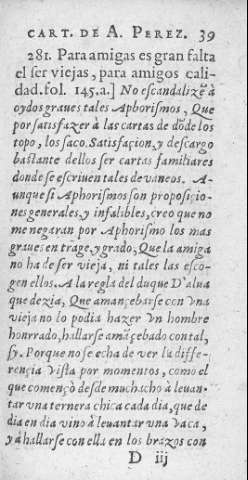 CART. DE A. PEREZ. 39
281. Para amigas es gran falta
el ser viejas, para amigos cali-
dad. fol. 145. a.] No escandalizẽ à
oydos graues tales Aphorismos, Que
por satisfazer à las cartas de dõde los
topo, los saco. Satisfaçion, y descargo
bastante dellos ser cartas familiares
donde se escriuen tales de vaneos. A-
unque si Aphorismos son proposiçio-
nes generales, y infalibles, creo que no
me negaran por Aphorismo los mas
graues en trage, y grado, Que la amiga
no ha de ser vieja, ni tales las esco-
gen ellos. A la regla del duque D'alua
que dezia, Que amançebarse con vna
vieja no lo podia hazer vn hombre
honrrado, hallarse amãçebado con tal,
sy. Porque no se echa de ver la diffe-
rençia vista por momentos, como el
que començò desde muchacho à leuan-
tar vna ternera chica cada dia, que de
dia en dia vino à leuantar vna vaca,
y à hallarse con ella en los brazos con
D iij